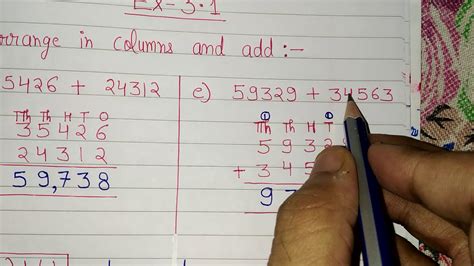 Ex-3.1
rrange in columns and add :-
5426 + 24312
e) 59329 + 34563
TTh Th H T O
3 5 4 2 6
2 4 3 1 2
5 9,7 3 8
① ①
TTh Th H T
5 9 3 2
+ 3 4 5
9